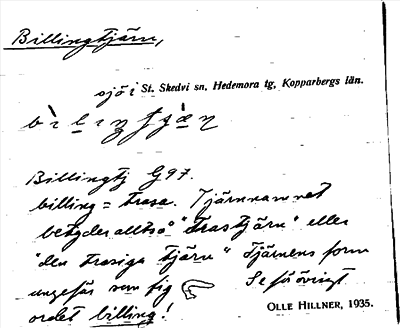 Billingtjärn,
sjö i St. Skedvi sn, Hedemora tg, Kopparbergs län.
Billingtj G97.
billing = trasa. Tjärnnamnet
betyder alltså "Trastjärn" eller
"den trasiga tjärn" Tjärnens form
ungefär som fig Se för övrigt
ordet billing!
OLLE HILLNER, 1935.